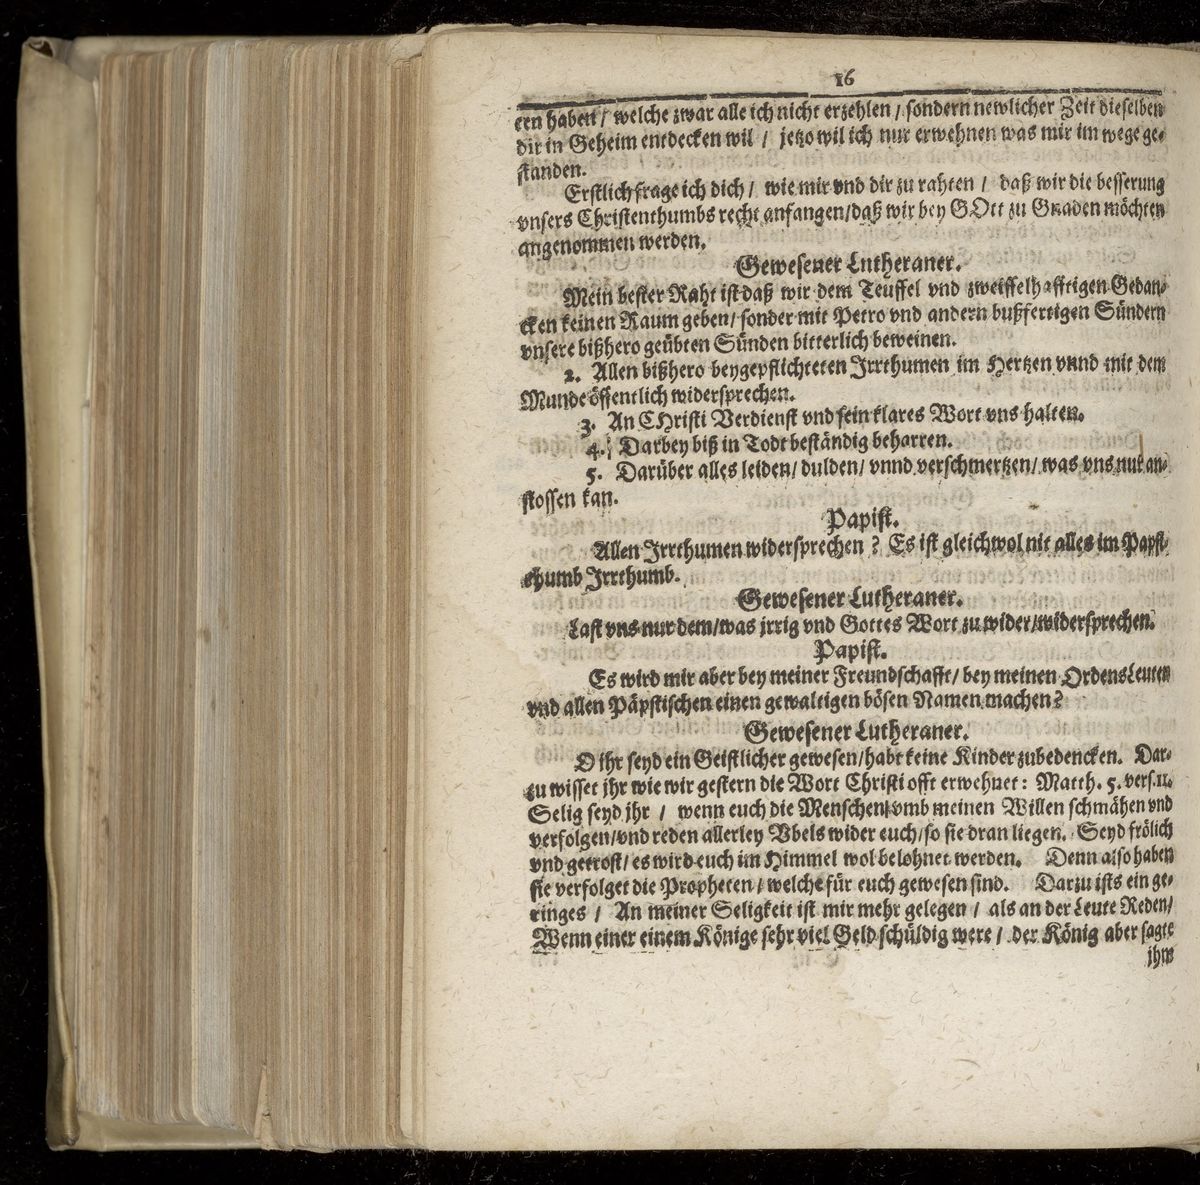 16
ten haben / welche zwar alle ich nicht erzehlen / sondern newlicher Zeit dieselben
dir in Geheim entdecken wil / jetzo wil ich nur erwehnen was mir im wege ge-
standen.
Erstlich frage ich dich / wie mir vnd dir zu rahten / daß wir die besserung
vnsers Christenthumbs recht anfangen/daß wir bey GOtt zu Gnaden möchten
angenommen werden.
Gewesener Lutheraner.
Mein bester Raht ist daß wir dem Teuffel vnd zweiffelhafftigen Gedan-
cken keinen Raum geben/ sonder mit Petro vnd andern bußfertigen Sündern
vnsere bißhero geübten Sünden bitterlich beweinen.
2. Allen bißhero beygepflichteten Jrrthumen im Hertzen vnnd mit dem
Munde öffentlich widersprechen.
3. An CHristi Verdienst vnd sein klares Wort vns halten.
4. Darbey biß in Todt beständig beharren.
5. Darüber alles leiden/ dulden/ vnnd verschmertzen/ was vns nur an-
stossen kan.
Papist.
Allen Jrrthumen widersprechen ? Es ist gleichwol nit alles im Papst-
thumb Jrrthumb.
Gewesener Lutheraner.
Last vns nur dem/was jrrig vnd Gottes Wort zu wider/widersprechen.
Papist.
Es wird mir aber bey meiner Freundschafft/ bey meinen OrdensLeuten
vnd allen Päpstischen einen gewaltigen bösen Namen machen?
Gewesener Lutheraner.
O ihr seyd ein Geistlicher gewesen/habt keine Kinder zubedencken. Dar-
zu wisset jhr wie wir gestern die Wort Christi offt erwehnet: Matth. 5. vers. 11.
Selig seyd jhr / wenn euch die Menschen vmb meinen Willen schmähen vnd
verfolgen/vnd reden allerley Vbels wider euch/so sie dran liegen. Seyd frölich
vnd getrost/ es wird euch im Himmel wol belohnet werden. Denn also haben
sie verfolget die Propheten / welche für euch gewesen sind. Darzu ists ein ge-
ringes / An meiner Seligkeit ist mir mehr gelegen / als an der Leute Reden/
Wenn einer einem Könige sehr viel Geld schüldig were / der König aber sagte
jhm